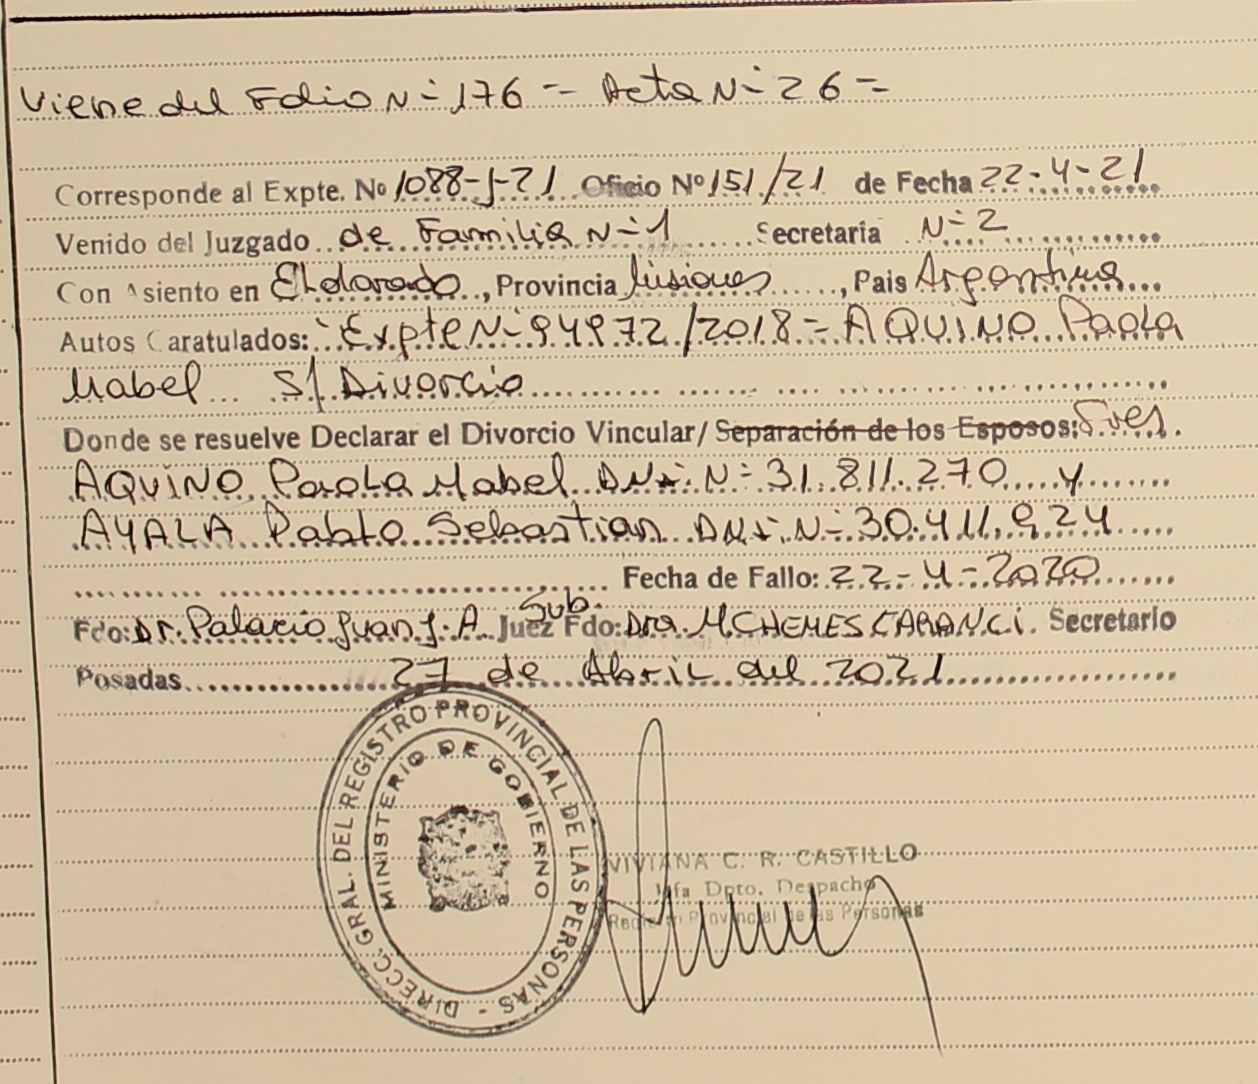 Viene del Folio N- 176 -- Acta N- 26 -
Corresponde al Expte. Nº 1088-J-21 Oficio Nº 151/21 de Fecha 22-4-21
Venido del Juzgado de Familia N-1 Secretaria N-2
Con Asiento en Eldorado, Provincia Misiones, Pais Argentina
Autos Caratulados: Expte N- 94972/2018 - AQUINO Paola
Mabel S/ Divorcio
Donde se resuelve Declarar el Divorcio Vincular/ Separación de los Esposos: Sres.
AQUINO Paola Mabel DNI. N- 31.811.270 y
AYALA Pablo Sebastian DNI. N- 30.411.924
Fecha de Fallo: 22-4-2020
Fdo: Dr. Palacio Juan J. A. Juez Sub. Fdo: Dra. M CHEMES CARANCI. Secretario
Posadas 27 de Abril del 2021
DIRECC. GRAL. DEL REGISTRO PROVINCIAL DE LAS PERSONAS -
MINISTERIO DE GOBIERNO
VIVIANA C. R. CASTILLO
Jefa Dpto. Despacho
Provincial de las Personas